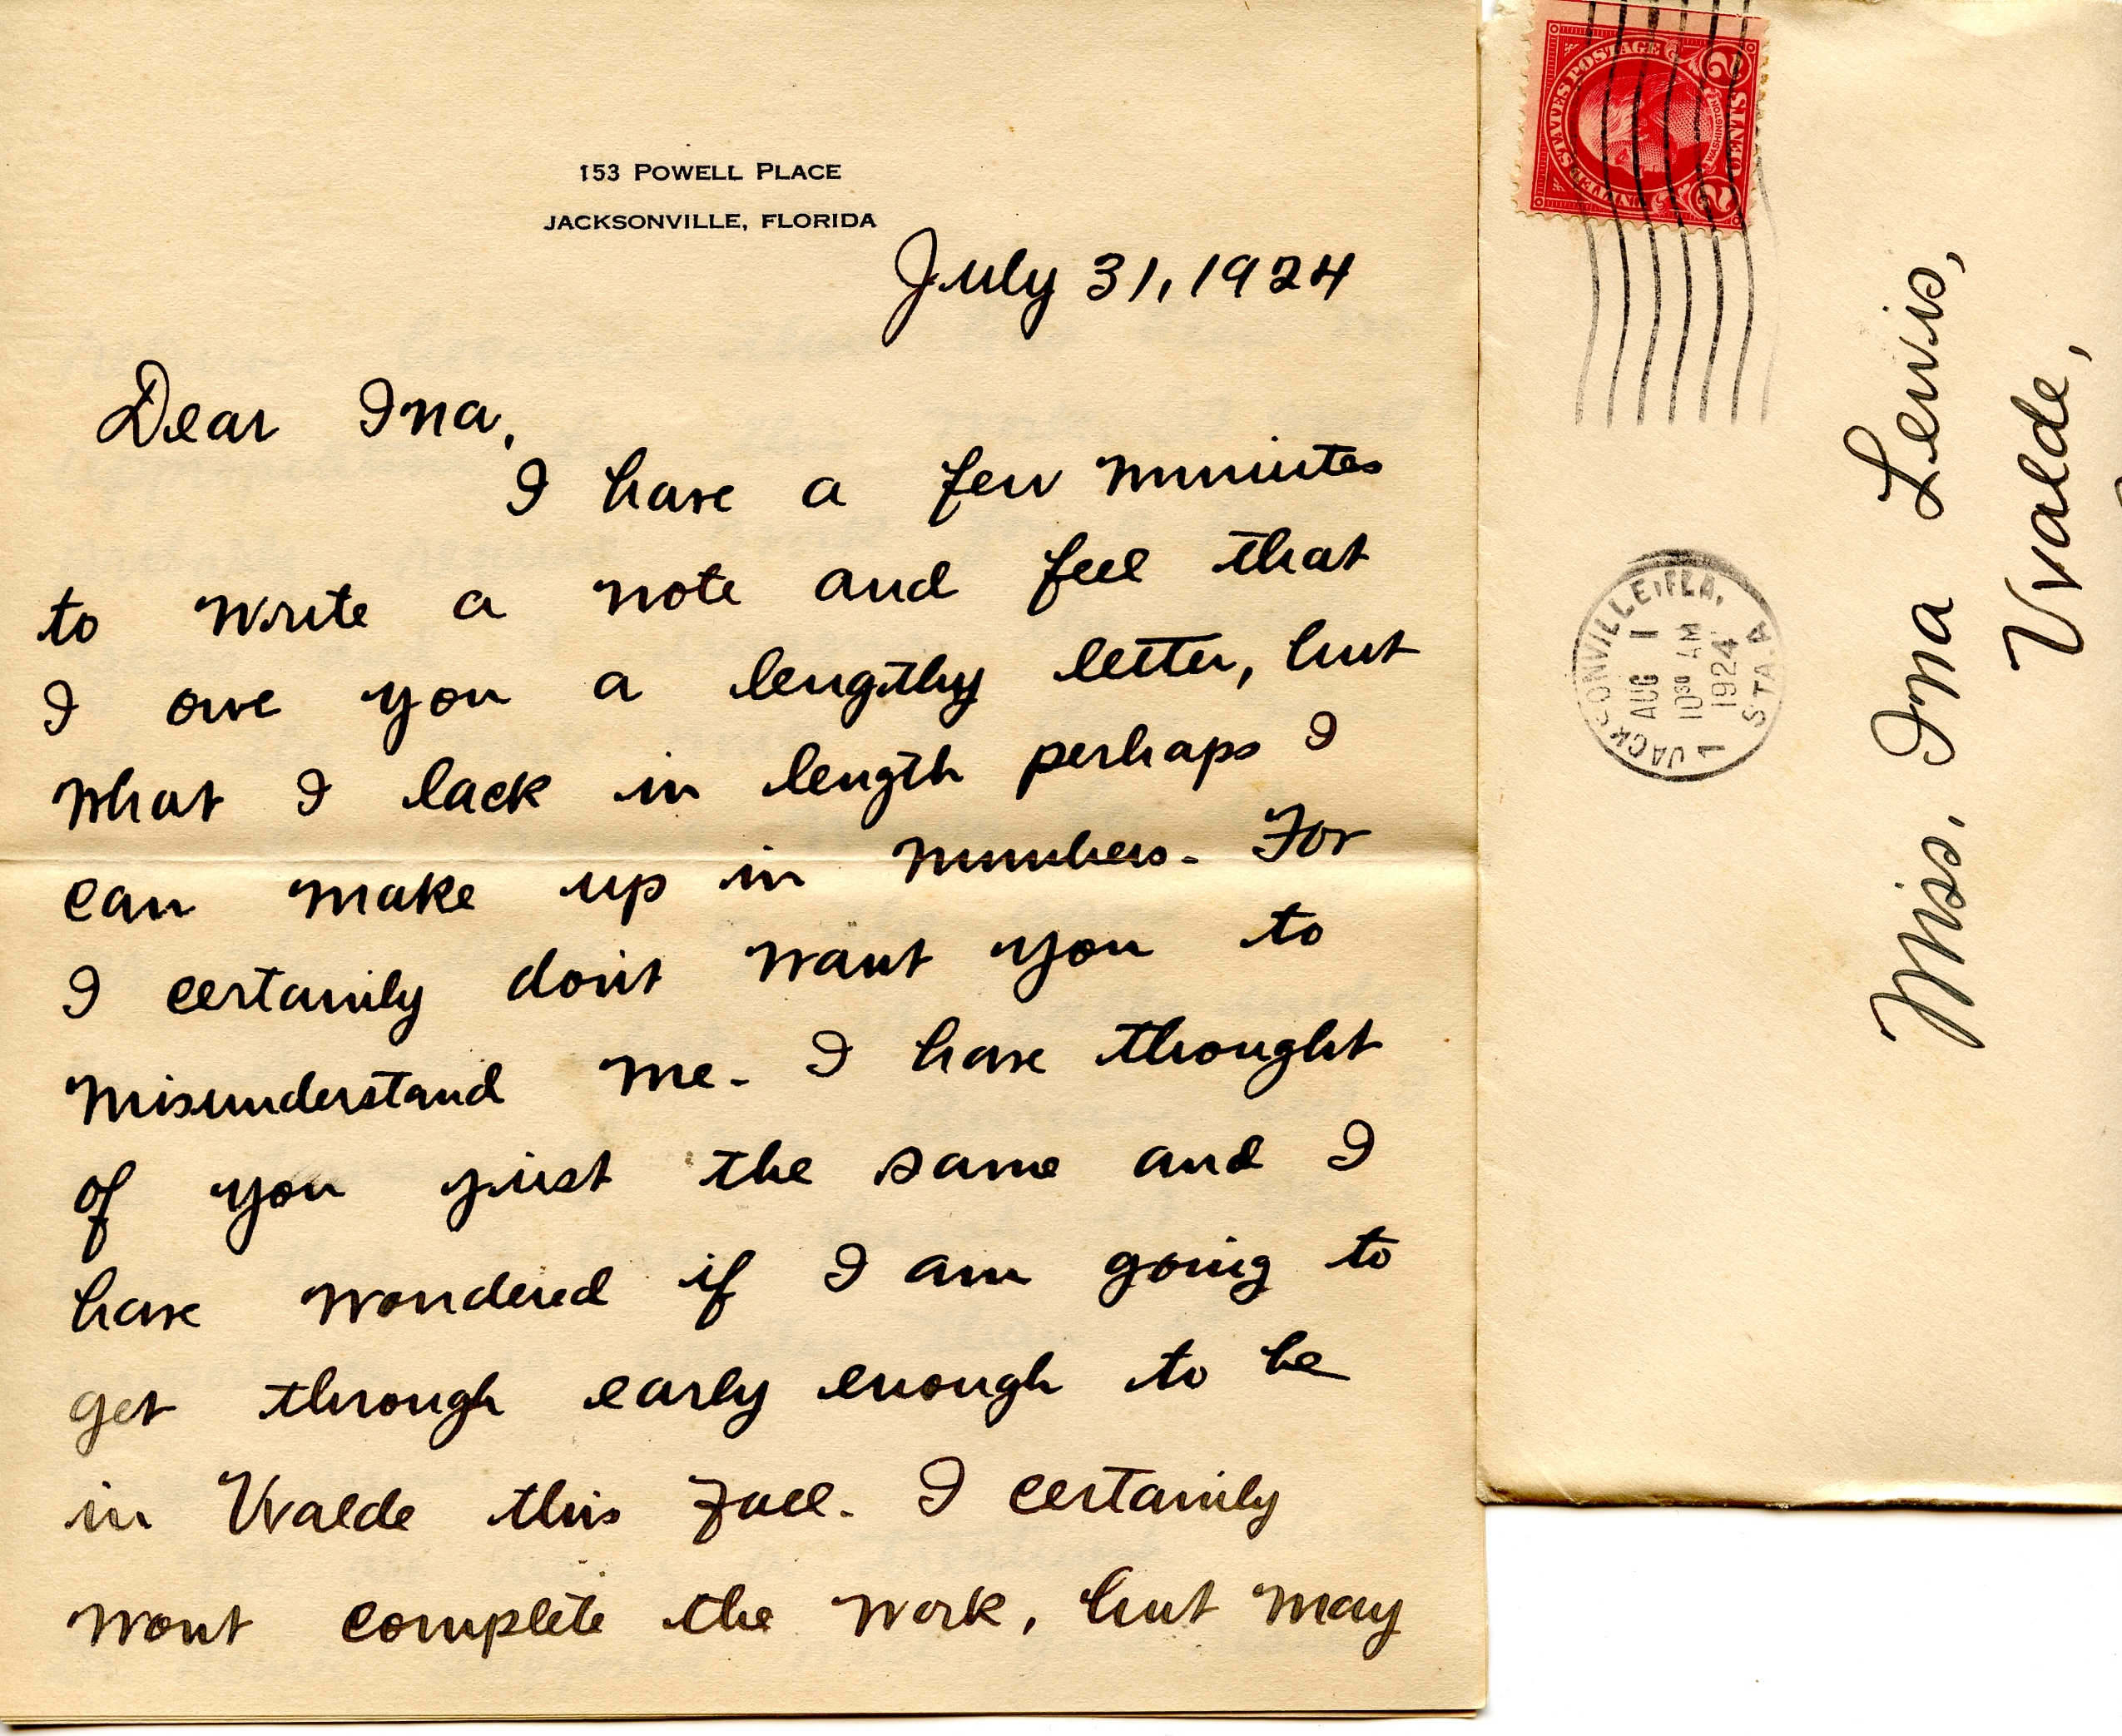 153 POWELL PLACE
JACKSONVILLE, FLORIDA
July 31, 1924
Dear Ina,
I have a few minutes
to write a note and feel that
I owe you a lengthy letter, but
what I lack in length perhaps I
can make up in numbers. For
I certainly don't want you to
misunderstand me. I have thought
of you just the same and I
have wondered if I am going to
get through early enough to be
in Uvalde this Fall. I certainly
wont complete the work, but may
UNITED STATES POSTAGE
WASHINGTON
2 CENTS 2
JACKSONVILLE, FLA.
AUG 1
10 30 AM
1924
1
STA. A
Miss. Ina Lewis,
Uvalde,